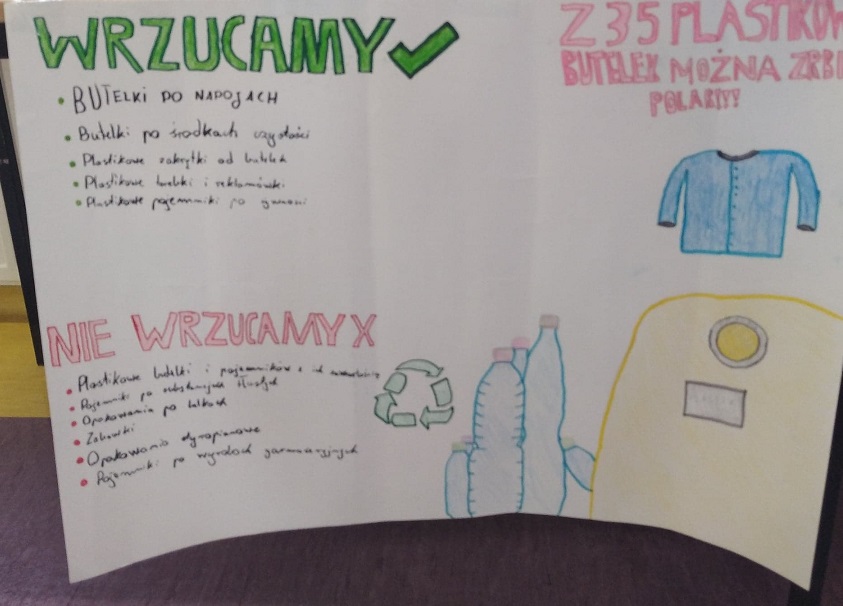 WRZUCAMY
BUTELKI PO NAPOJACH
Butelki po środkach czystości
Plastikowe zakrętki od butelek
Plastikowe torebki i reklamówki
Plastikowe pojemniki po
NIE WRZUCAMY X
Plastikowe butelki i pojemników z ich zawartością
Pojemniki po substancjach tłustych
Opakowania po lekach
Zabawki
Opakowania styropianowe
Pojemniki po wyrobach garmażeryjnych
Z 35 PLASTIKOW
BUTELEK MOŻNA ZRBI
POLAR!!!